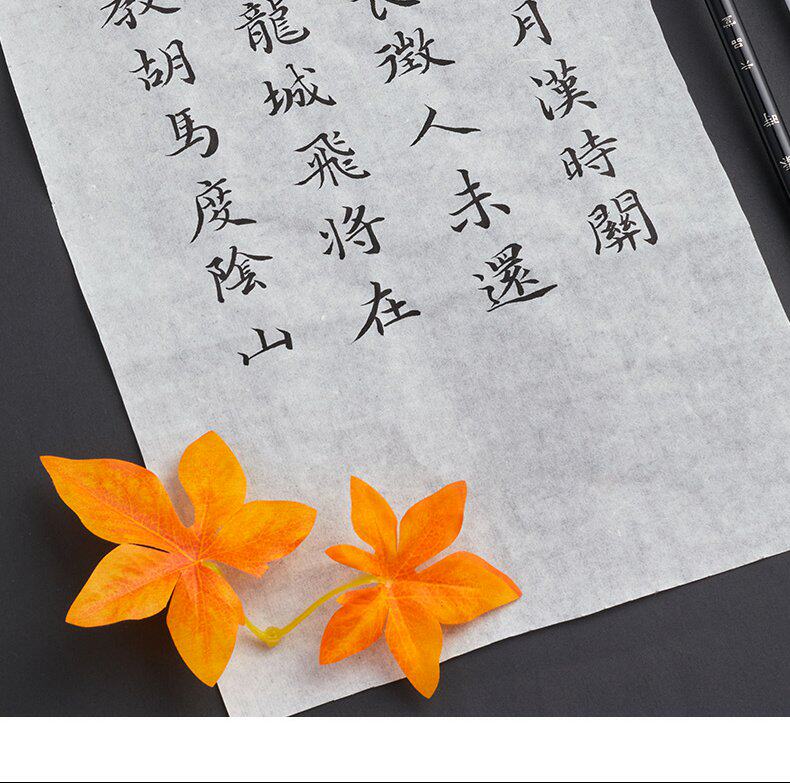 月漢時關
長徵人未還
龍城飛將在
教胡馬度陰山